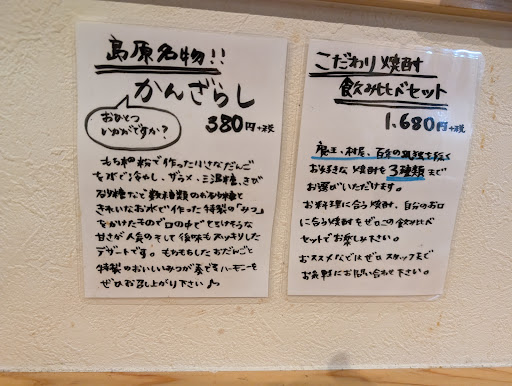 島原名物!!
かんざらし
おひとつ
いかがですか?
380円+税
もち米粉で作った小さなだんご
を水で冷やし、ザラメ、三温糖、きび
砂糖など数種類のお砂糖と
きれいなお水で作った特製の「みつ」
をかけたもので口の中でとろけそうな
甘さが人気のそして後味もスッキリした
デザートです。もちもちしたおだんごと
特製のおいしいみつが奏でるハーモニーを
ぜひお召し上がり下さい♪
こだわり焼酎
飲み比べセット
1.680円+税
魔王、村尾、百年の孤独を除く
お好きな焼酎を3種類まで
お選びいただけます。
お料理に合う焼酎、自分のお口
に合う焼酎をぜひこの飲み比べ
セットでお楽しみ下さい。
おススメなどはぜひスタッフまで
お気軽にお問い合わせ下さい。